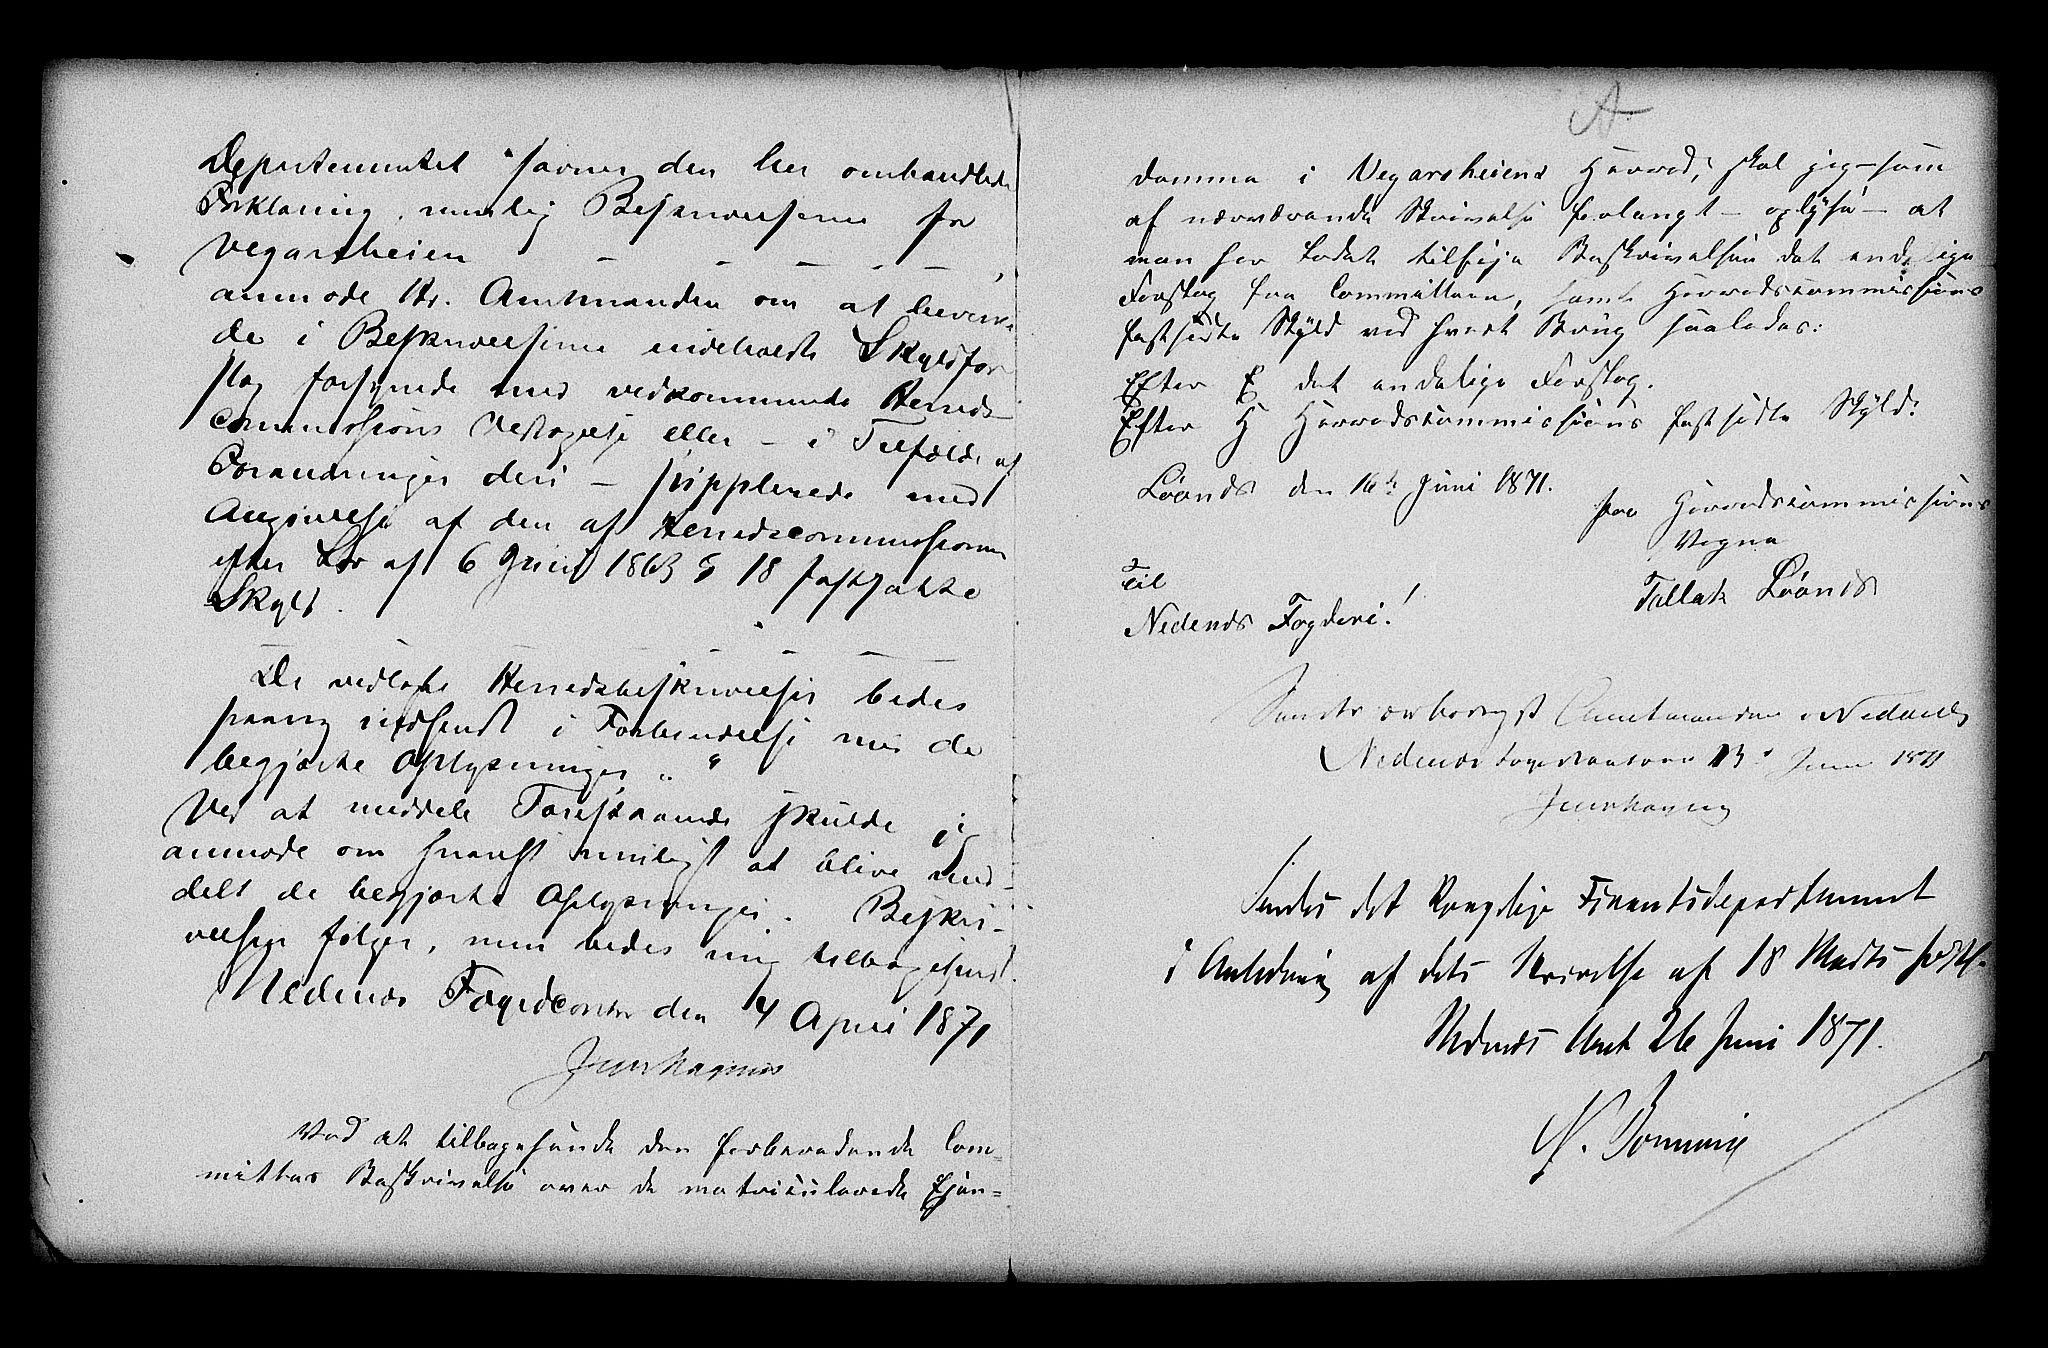 Departementet savner den her omhandlede
Erklæring, nemlig Beskrivelserne for
Vegarsheien — — — — — ,
anmode Hr. Amtmanden om at bevirke
de i Beskrivelserne indeholdte Skyldfor
slag forsynede med vedkommende Herreds
commissions Vedtagelse eller – i Tilfælde af
Forandringer deri – supplerede med
Angivelse af den af Herredscommissionen
efter Lov af 6 Juni 1863 § 18 fastsatte
Skyld.
De vedlagte Herredsbeskrivelser bedes
paany indsendt i Forbindelse med de
begjærte Oplysninger „ “
Ved at meddele Foranstaaende skulde jeg
anmode om snarest muligt at blive med-
delt de begjærte Oplysninger. Beskri-
velsen følger, men bedes mig tilbagesendt.
Nedenæs Fogedcontor den 4 April 1871
Ved at tilbagesende den forberedende Com-
mittees Beskrivelse over de matriculerede Ejen=
A.
domme i Vegarsheiens Herred, skal jeg – som
af nærværende Skrivelse forlangt – oplyse – at
man har ladet tilføje Beskrivelsen det endelige
Forslag fra Committeen, samt Herredskommissionens
fastsatte Skyld ved hvert Brug saaledes:
Efter E det endelige Forslag.
Efter H Herredskommissionens fastsatte Skyld:
Løvnds den 16de Juni 1871.
paa Herredskommissionens
Vegne
Tallak Løvnds
Til
Nedenæs Fogderi!
Sendes ærbødigst Amtmanden i Nedenæs
Nedenæs Fogedkontor 23. Juni 1871
Sendes det Kongelige Finantsdepartement
i Anledning af dets Skrivelse af 18 Marts sidstl.
Nedenæs Amt 26 Juni 1871.